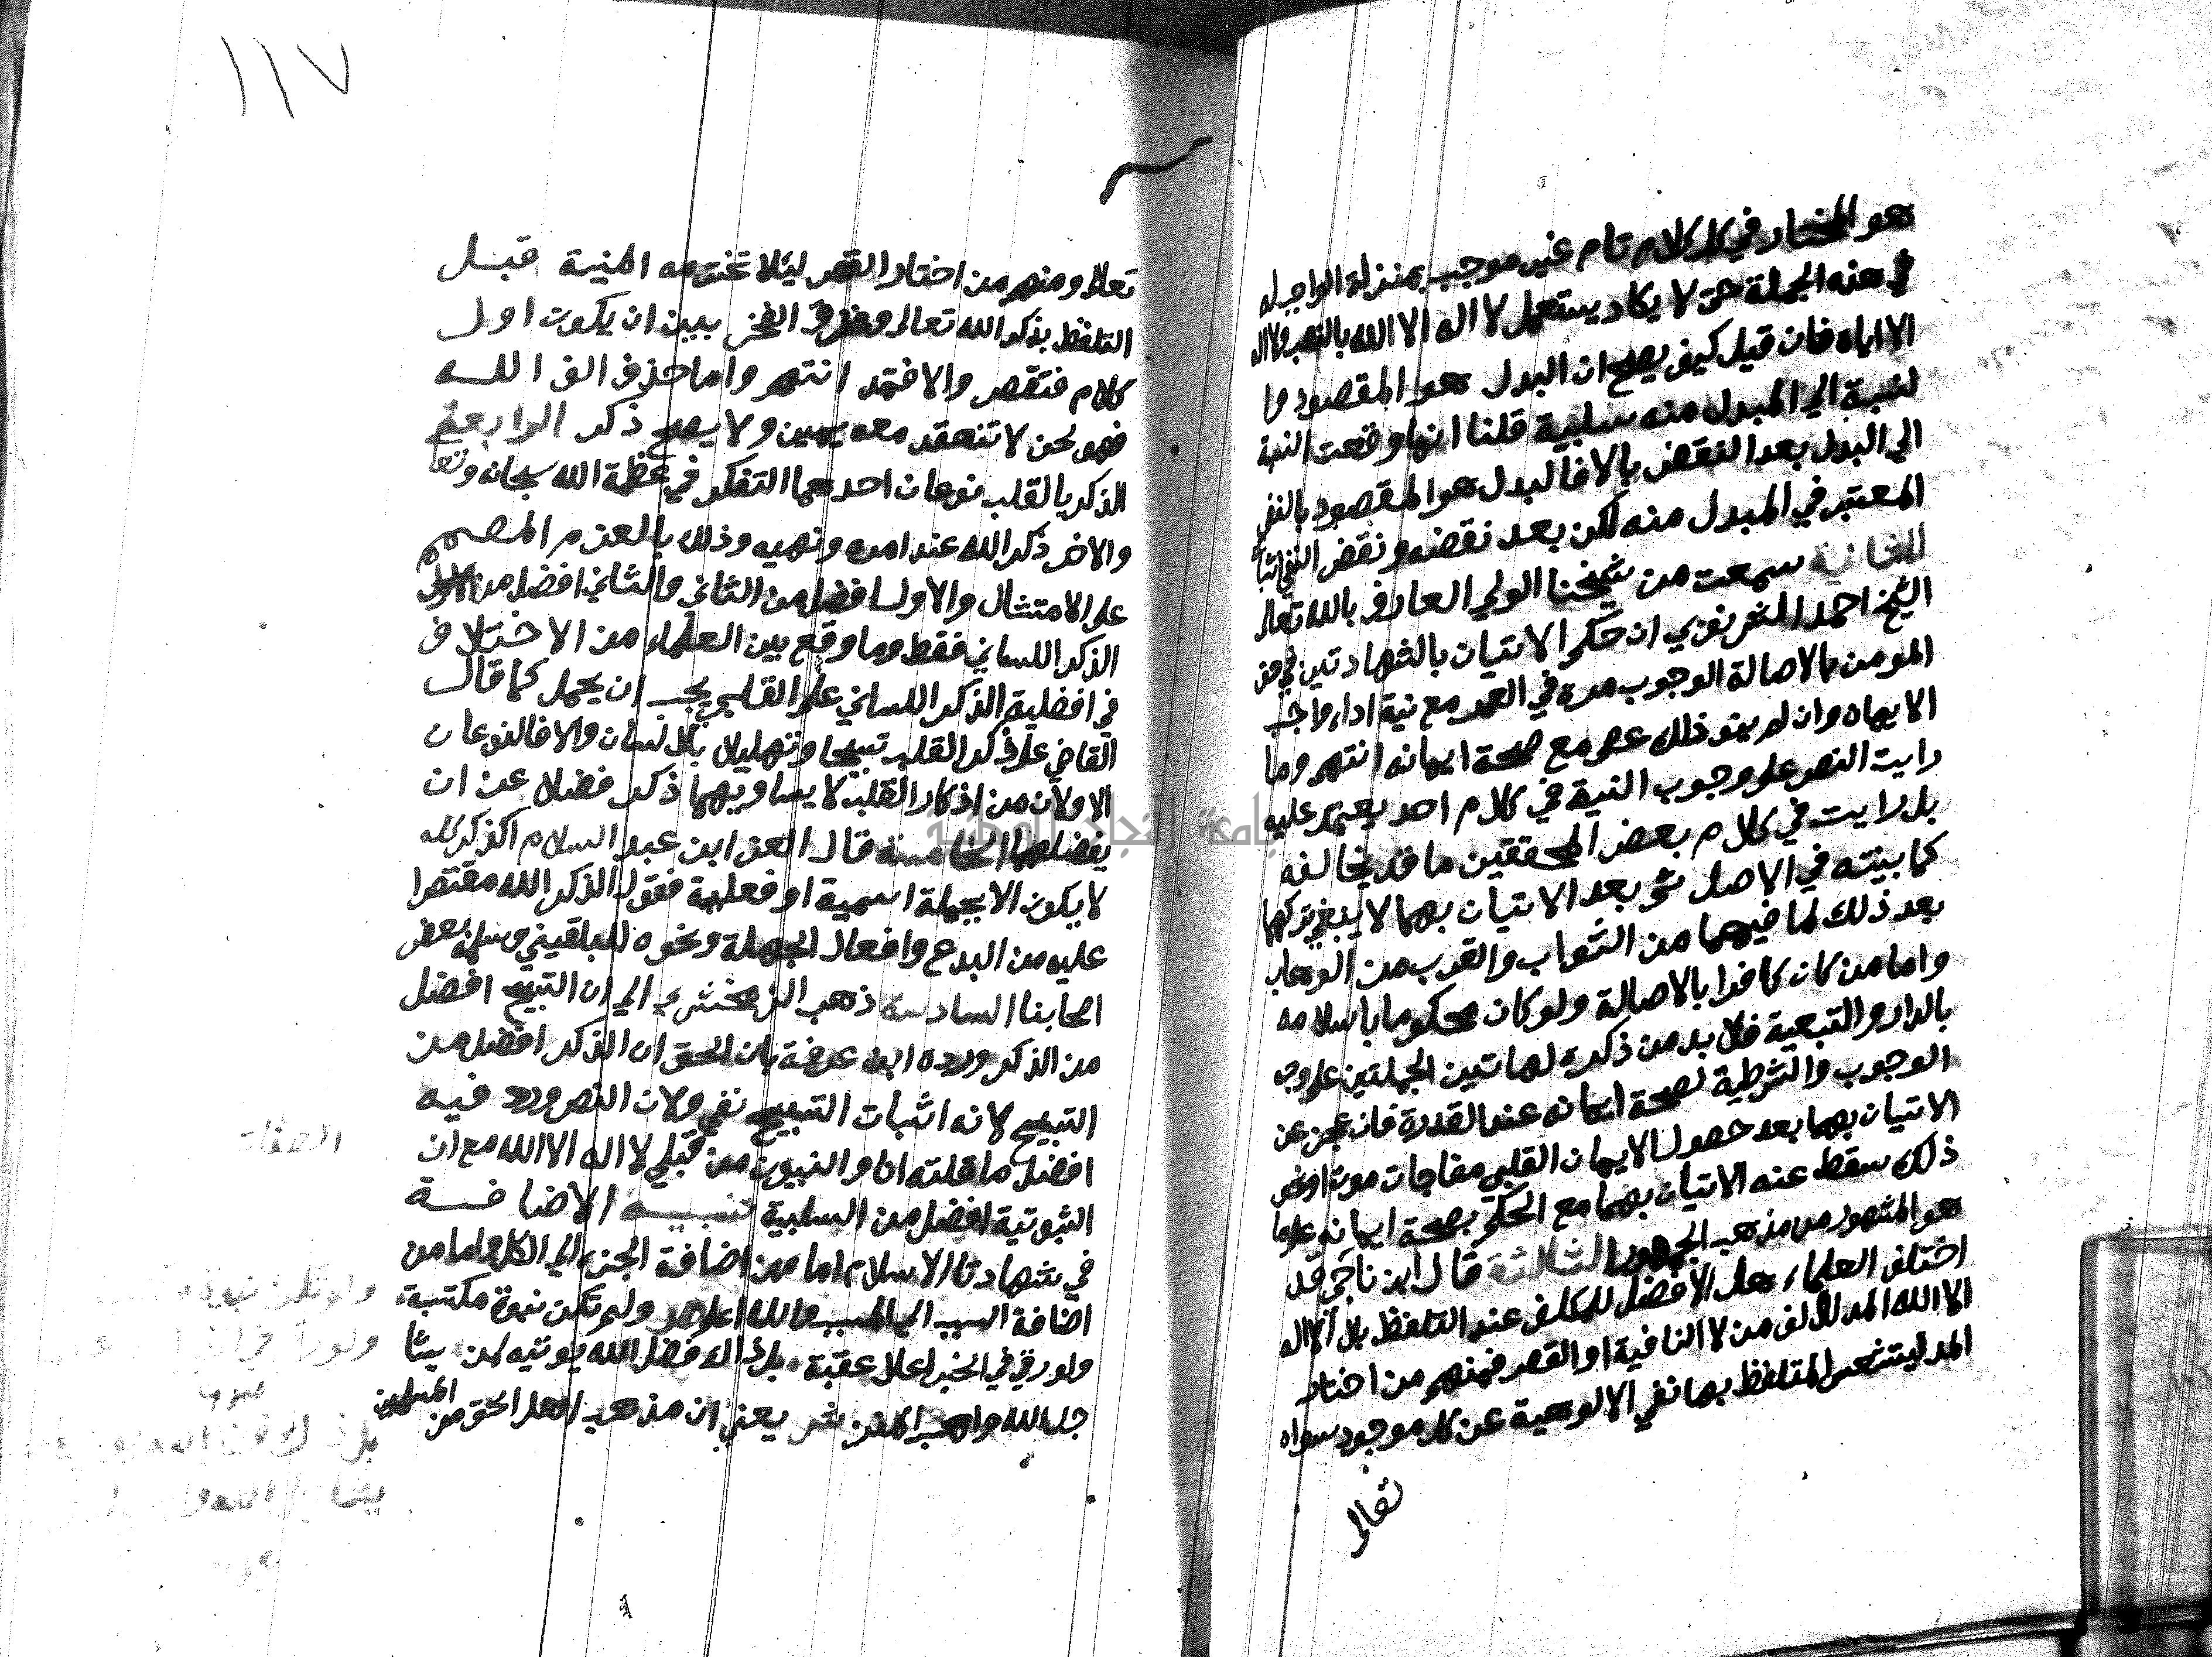 هو المختار في كل كلام تام غير موجب بمنزلة الواجب له
في هذه الجملة حتى لا يكاد يستعمل لا اله الا الله بالنصب ولا اله
الا اياه فان قيل كيف يصح ان البدل هو المقصود وا
لنسبة الي المبدل منه سلبية قلنا انما وقعت النسبة
الى البدل بعد النقض بالا فالبدل هو المقصود بالنفي
المعتبر في المبدل منه لكن بعد نقضه ونقض النفي اثبات
الثانية سمعت من شيخنا الولي العارف بالله تعالى
الشيخ احمد الشرنفوبي ان حكم الاتيان بالشهادتين في حق
المومن بالاصالة الوجوب مرة في العمر مع نية اداء واجب
الايمان وان لم ينو ذلك عصى مع صحة ايمانه انتهى وما
رايت النص على وجوب النية في كلام احد يعتمد عليه
بل رايت في كلام بعض المحققين ما قد يخالفه
كما بينته في الاصل ثم بعد الاتيان بهما لا ينبغي تركهما
بعد ذلك لما فيهما من الثواب والقرب من الوهاب
واما من كان كافرا بالاصالة ولو كان محكوما باسلامه
بالدار والتبعية فلا بد من ذكره لهاتين الجملتين على وجه
الوجوب والشرطية لصحة ايمانه عند القدرة فان عجز عن
الاتيان بهما بعد حصول الايمان القلبي مفاجات موت او نحو
ذلك سقط عنه الاتيان بهما مع الحكم بصحة ايمانه على ما
هو المشهور من مذهب الجمهور الثالثة قال ابن ناجي قد
اختلف العلماء هل الافضل للمكلف عند التلفظ بلا اله
الا الله المد للالف من لا النافية او القصر فمنهم من اختار
المد ليستشعر المتلفظ بها نفي الالوهية عن كل موجود سواه
تعالى
١١٧
تعالى ومنهم من اختار القصر ليلا تخترمه المنية قبل
التلفظ بذكر الله تعالى وفرق الفخر ببين ان يكون اول
كلام فتقصر والا فتمد انتهى واما حذف الف الله
فهو لحن لا تنعقد معه يمين ولا يصح ذكر الرابعة
الذكر بالقلب نوعان احدهما التفكر في عظمة الله سبحانه وتعا
والاخر ذكر الله عند امره ونهيه وذلك بالعزم المصمم
على الامتثال والاول افضل من الثاني والثاني افضل من الاول
الذكر اللساني فقط وما وقع بين العلماء من الاختلاف
في افضلية الذكر اللساني على القلبي يجب ان يحمل كما قال
القاضي على ذكر القلب تسبيحا وتهليلا باللسان والا فالنوعان
الاولان من اذكار القلب لا يساويهما ذكر فضلا عن ان
يفضلهما الخامسة قال العز ابن عبد السلام الذكر كله
لا يكون الا بجملة اسمية او فعلية فقول الذاكر الله مقتصرا
عليه من البدع وافعال الجهلة ونحوه للبلقيني وسلمه بعض
اصحابنا السادسة ذهب الزمخشري الي ان التسبيح افضل
من الذكر ورده ابن عرفة بان الحق ان الذكر افضل من
التسبيح لانه اثبات التسبيح نفي ولان النص ورد فيه
افضل ما قلته انا والنبيون من قبلي لا اله الا الله مع ان
الثبوتية افضل من السلبية تنبيه الاضافة
في شهادتا الاسلام اما من اضافة الجزء الي الكل واما من
اضافة السبب الى المسبب والله اعلم ص ولم تكن نبوة مكتسبة
ولو رقي في الخير اعلا عقبة بل ذاك فضل الله يوتيه لمن يشا
جل الله واهب المنن ش يعني ان مذهب اهل الحق من المسلمين
الصفات